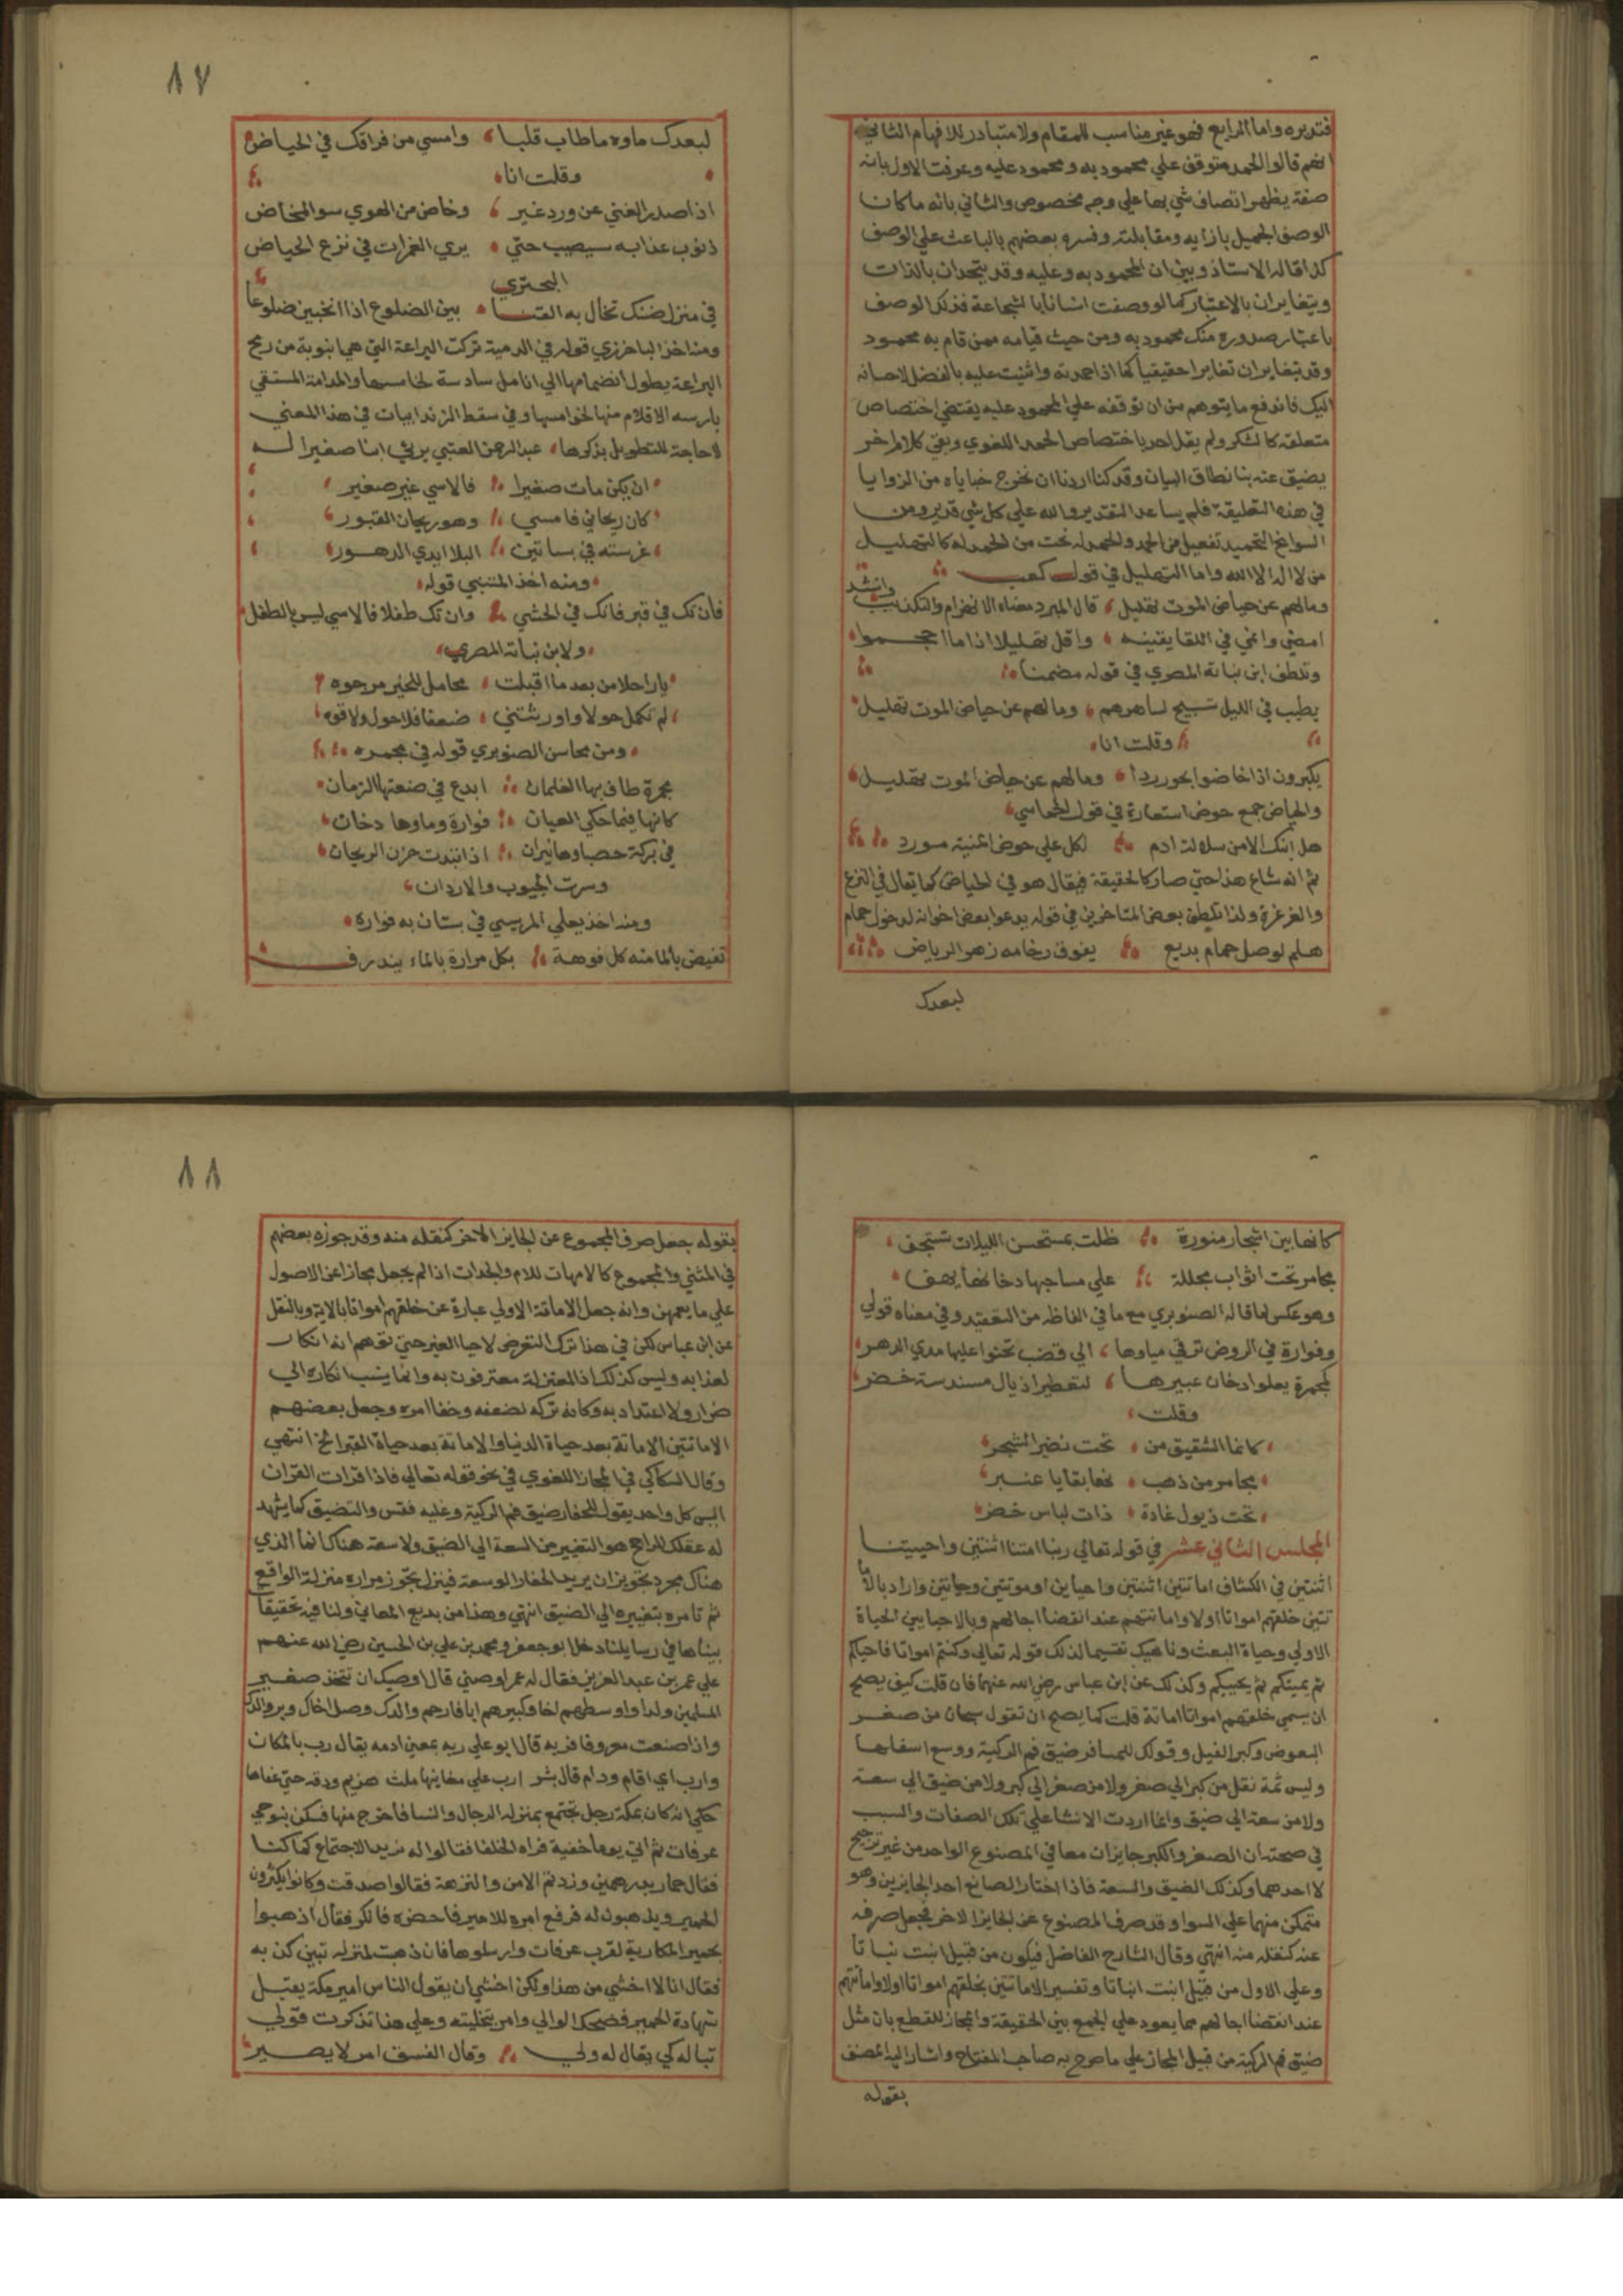 فتدبره واما الرابع فهو غير مناسب للمقام ولا متبادر للافهام الثاني
انهم قالوا الحمد متوقف علي محمود به ومحمود عليه وعرفت الاول بانه
صفة يظهر اتصاف شي بها علي وجه مخصوص والثاني بانه ما كان
الوصف الجميل بازايه ومقابلته وفسره بعضهم بالباعث علي الوصف
كذا قاله الاستاذ وبين ان المحمود به وعليه قد يتحدان بالذات
ويتغايران بالاعتبار كما لو وصفت انسانا بالشجاعة فذلك الوصف
باعتبار صدوره منك محمود به ومن حيث قيامه بمن قام به محمود
وقد يتغايران تغايرا حقيقيا كما اذا حمدته واثنيت عليه بالفضل لاحسانه
اليك فاندفع ما يتوهم من ان توقفه علي المحمود عليه يقتضي اختصاص
متعلقه كالشكر ولم يقل احد باختصاص الحمد اللغوي وبقي كلام اخر
يضيق عنه بنا نطاق البيان وقد كنا اردنا ان نخرج خباياه من الزوايا
في هذه التعليقة فلم يساعد التقدير والله علي كل شي قدير ومن
السوانح التحميد تفعيل من الحمد والحمدله نحت من الحمد لله كالتهليل
من لا اله الا الله واما التهليل في قول كعب
وما لهم عن حياض الموت تهليل قال المبرد معناه الانهزام والتكذيب وانشد
امضي وانمي في اللقا يقينه واقل تهليلا اذا ما احجموا
وتلطف ابن نباتة المصري في قوله مضمنا
يطيب في الليل تسبيح لساهرهم وما لهم عن حياض الموت تهليل
وقلت انا
يكبرون اذا خاضوا بحور ردا وما لهم عن حياض الموت تهليل
والحياض جمع حوض استعارة في قول الحماسي
هل انتك الا من سلالة ادم لكل علي حوض المنية مورد
ثم انه شاع هذا حتي صار كالحقيقة فيقال هو في الحياض كما يقال في النزع
والغرغرة ولذا تلطف بعض المتاخرين في قوله يدعوا بعض اخوانه لدخول حمام
هلم لوصل حمام بديع يفوق رخامه زهو الرياض
لبعدك
٨٧
لبعدك ماوه ما طاب قلبا وامسي من فراقك في الحياض
وقلت انا
اذا صدر الغني عن ورد غير وخاض من الهوي سو المخاض
ذنوب عذابه سيصب حتي يري الغمرات في نزع الحياض
البحتري
في منزل ضنك تخال به القنا بين الضلوع اذا انحنين ضلوعا
ومنه اخذ الباخرزي قوله في الدمية تركت اليراعة التي هي انبوبة من ريح
اليراعة يطول انضمامها الي انامل سادسة لخامسها والمدامة المستقي
بارسه الاقلام منها لخوامسها وفي سقط الزند ابيات في هذا المعني
لا حاجة للتطويل بذكرها عبد الرحمن العتبي يرثي ابنا صغيرا له
ان يكن مات صغيرا فالاسي غير صغير
كان ريحاني فامسي وهو ريحان القبور
غرسته في بساتين البلا ايدي الدهور
ومنه اخذ المتنبي قوله
فان تك في قبر فانك في الحشي وان تك طفلا فالاسي ليس بالطفل
ولابن نباتة المصري
يا راحلا من بعد ما اقبلت مخامل للخير مرجوه
لم تكمل حولا واورثتني ضعفا فلا حول ولا قوه
ومن محاسن الصنوبري قوله في مجمره
مجمرة طاف بها الغلمان ابدع في صنعتها الزمان
كانها فيما حكي العيان فوارة وماوها دخان
في بركة حصباوها نيران اذا تبدت حزن الريحان
وسرت الجيوب والاردان
ومنه اخذ يعلي المريسي في بستان به فواره
تفيض بالما منه كل فوهة بكل مرارة بالماء يندرف
كانها بين اشجار منورة ظلت بمستحسن الليلات تستجف
مجامر تحت اثواب مجللة علي مساجبها دخانها يهف
وهو عكس لما قاله الصنوبري مع ما في الفاظه من التعقيد وفي معناه قولي
وفوارة في الروض ترقي مياوها الي قضب تحنوا عليها مدي الدهر
كمجمرة يعلوا دخان عبيرها لتعطير اذيال مسندسة خضر
وقلت
كانما الشقيق من تحت نضير الشجر
مجامر من ذهب فها بقايا عنبر
تحت ذيول غادة ذات لباس خضر
المجلس الثاني عشر في قوله تعالي ربنا امتنا اثنتين واحييتنا
اثنتين في الكشاف اماتتين اثنتين واحياين او موتتين وحياتين واراد بالاما
تتين خلقهم امواتا اولا واماتتهم عند انقضا اجالهم وبالاحيايين الحياة
الاولي وحياة البعث وناهيك تفسيرا لذلك قوله تعالي وكنتم امواتا فاحياكم
ثم يميتكم ثم يحييكم وكذلك عن ابن عباس رضي الله عنهما فان قلت كيف يصح
ان يسمي خلقهم امواتا اماتة قلت كما يصح ان تقول سبحان من صغر
البعوض وكبر الفيل وقولك للحفار ضيق فم الركية ووسع اسفلها
وليس ثمة نقل من كبر الي صغر ولا من صغر الي كبر ولا من ضيق الي سعة
ولا من سعة الي ضيق وانما اردت الانشا علي تلك الصفات والسبب
في صحته ان الصغر والكبر جايزان معا في المصنوع الواحد من غير ترجيح
لاحدهما وكذلك الضيق والسعة فاذا اختار الصانع احد الجايزين وهو
متمكن منهما علي السوا وقد صرف المصنوع عن الجايز الاخر فجعل صرفه
عنه كنقله منه انتهي وقال الشارح الفاضل فيكون من قبيل انبت نباتا
وعلي الاول من قبيل انبت انباتا وتفسير الاماتتين بخلقهم امواتا اولا واماتتهم
عند انقضا اجالهم مما يعود علي الجمع بين الحقيقة والمجاز للقطع بان مثل
ضيق فم الركية من قبيل المجاز علي ما صرح به صاحب المفتاح واشار اليه المصنف
بقوله
٨٨
بقوله جعل صرف المجموع عن الجايز الاخر كنقله منه وقد جوزه بعضهم
في المثني والمجموع كالامهات للام والجدات اذا لم يجعل مجازا عن الاصول
علي ما يعمهن وانه جعل الاماتة الاولي عبارة عن خلقهم امواتا بالاية وبالنقل
عن ابن عباس لكن في هذا ترك التعرض لاحيا القبر حتي توهم انه انكار
لعذابه وليس كذلك اذ المعتزلة معترفون به وانما ينسب انكاره الي
ضرار ولا اعتداد به وكانه تركه لضعفه وخفا امره وجعل بعضهم
الاماتتين الاماتة بعد حياة الدنيا والاماتة بعد حياة القبر الخ انتهي
وقال السكاكي في المجاز اللغوي في نحو قوله تعالي فاذا قرات القران
اليس كل واحد يقول للحفار ضيق فم الركية وعليه فقس والتضيق كما يشهد
له عقلك الراجح هو التغيير من السعة الي الضيق ولا سعة هناك انما الذي
هناك مجرد تجويز ان يريد الحفار الوسعة فينزل مجوز مراده منزلة الواقع
ثم تامره بتغييره الي الضيق انتهي وهذا من بديع المعاني ولنا فيه تحقيقا
بيناها في رسايلنا دخل ابو جعفر محمد بن علي بن الحسين رضي الله عنهم
علي عمر بن عبد العزيز فقال له عمر اوصني قال اوصيك ان تتخذ صغير
المسلمين ولدا واوسطهم اخا وكبيرهم ابا فارحم ولدك وصل اخاك وبر والدك
واذا صنعت معروفا فربه قال ابو علي ربه بمعني ادمه يقال رب بالمكان
وارب اي اقام ودام قال بشر ارب علي مغانيها ملث هزيم ودقه حتي عفاها
حكي انه كان بمكة رجل تجتمع بمنزله الرجال والنسا فاخرج منها فسكن بنواحي
عرفات ثم اتي يوما خفية فراه الخلفا فقالوا له نريد الاجتماع كما كنا
فقال حمار بدرهمين وزدتم الامن والنزهة فقالوا صدقت وكانوا يكثرون
الحمير ويذهبون له فرفع امره للامير فاحضره فانكر فقال اذهبوا
بحمير المكارية لقرب عرفات وارسلوها فان ذهبت لمنزله تبين كذبه
فقال انا لا اخشي من هذا ولكن اخشي ان يقول الناس امير مكة يقبل
شهادة الحمير فضحك الوالي وامر بتخليته وعلي هذا تذكرت قولي
تباله كي يقال له ولي وقال الفسق امر لا يصير